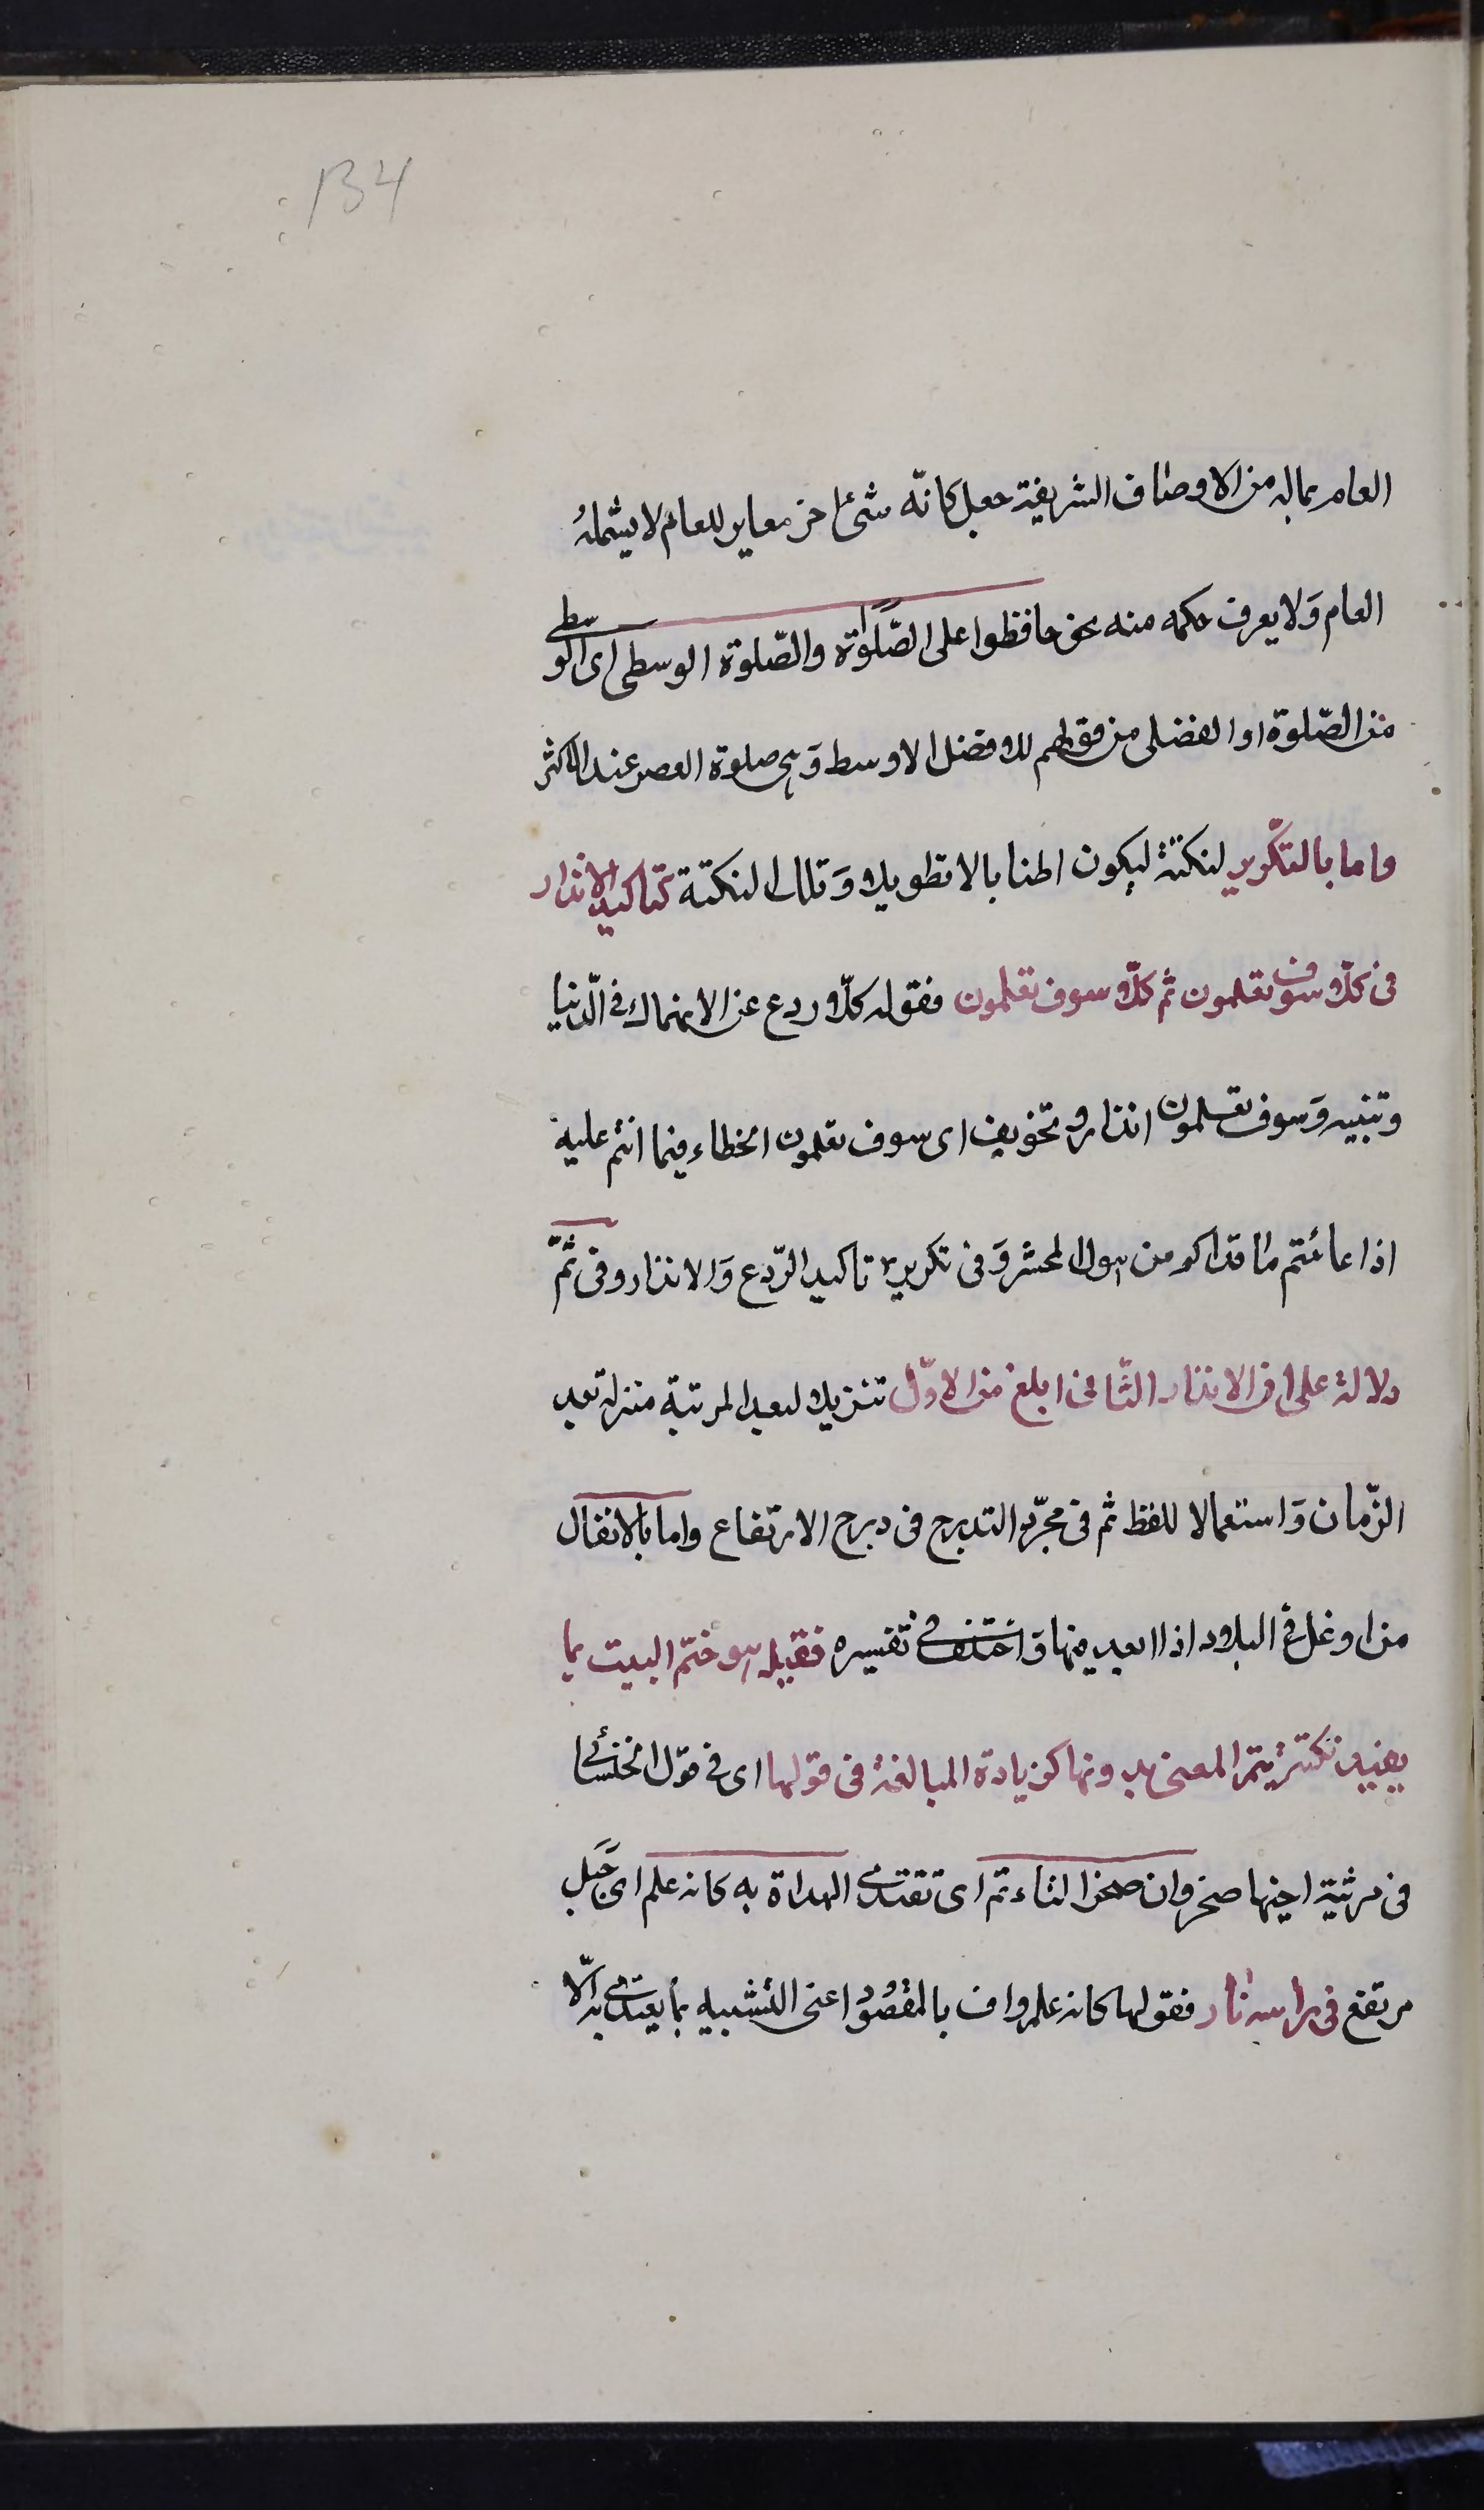 134
العام بماله من الاوصاف الشريفة جعل كانّه شئ اخر مغاير للعام لا يشمله
العام وَلا يعرف حكمه منه نحو حافظوا على الصّلوٰة والصّلوة الوسطى اى الوسطى
من الصّلوة او الفضلى من قولهم للافضل الاوسط وَهى صلوة العصر عند الاكثر
واما بالتّكرير لنكتة ليكون اطنابا لا تطويلا وَتلك النكتة كتاكيد الانذار
فى كلّا سوف تعلمون ثم كلّا سوف تعلمون فقوله كلّا ردع عن الانهماك فى الدّنيا
وتنبيه وَسوف تعلمون انذار وتخويف اى سوف تعلمون الخطاء فيما انتم عليه
اذا عائنتم ما قدامكم من هول المحشر وَفى تكريره تاكيد الرّدع وَالانذار وفى ثُمّ
دلالة على ان الانذار الثّانى ابلغ من الاوّل تنزيلا لبعد المرتبة منزلة بعد
الزّمان وَاستعمالا للفظ ثم فى مجرّد التدرج فى درج الارتقاع واما بالايغال
من اوغل فى البلاد اذا ابعد فيها وَاختلف فى تفسيره فقيل هو ختم البيت بما
يفيد نكتة يتم المعنى بدونها كزيادة المبالغة فى قولها اى فى قول الخنساء
فى مرثية اخيها صخر وان صخرا لتاءتم اى تقتدى الهداة به كانه علم اى جَبَل
مرتفع فى راسه نار فقولها كانه علم واف بالمقصُود اعنى التشبيه بما يهتدى به الّا